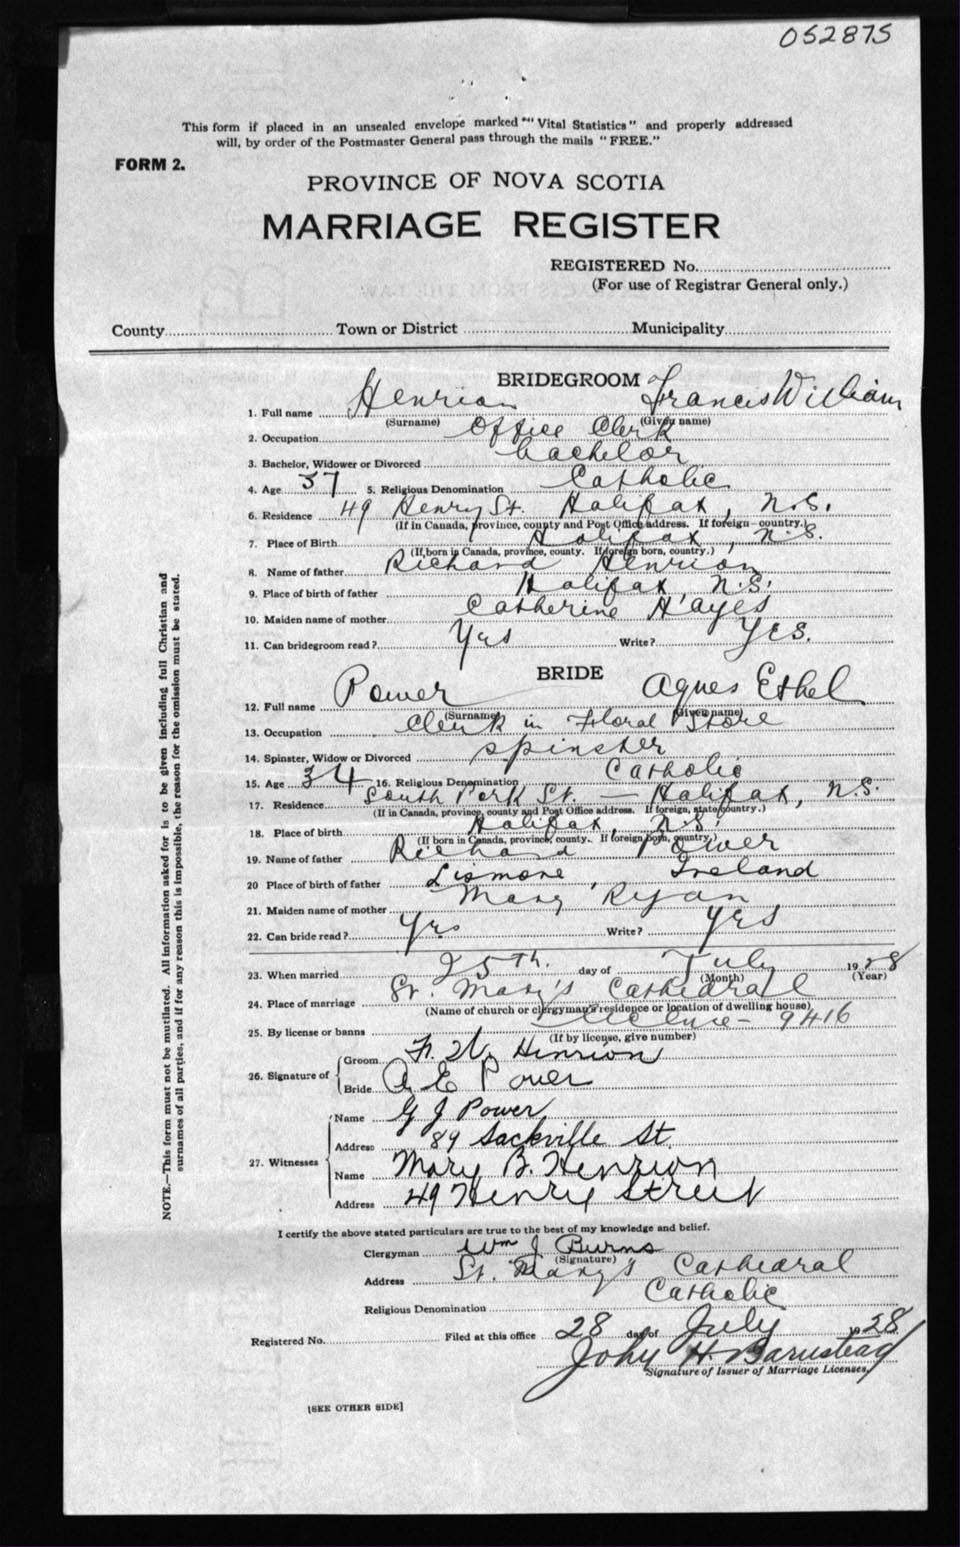 052875
This form if placed in an unsealed envelope marked "" Vital Statistics" and properly addressed
will, by order of the Postmaster General pass through the mails "FREE."
FORM 2.
PROVINCE OF NOVA SCOTIA
MARRIAGE REGISTER
REGISTERED No.
(For use of Registrar General only.)
County Town or District Municipality
BRIDEGROOM
1. Full name Henrion Francis William
(Surname) (Given name)
2. Occupation Office Clerk
3. Bachelor, Widower or Divorced bachelor
4. Age 37 5. Religious Denomination Catholic
6. Residence 49 Henry St. Halifax, N.S.
(If in Canada, province, county and Post Office address. If foreign—country.)
7. Place of Birth Halifax, N.S.
(If born in Canada, province, county. If foreign born, country.)
8. Name of father Richard Henrion
9. Place of birth of father Halifax N.S.
10. Maiden name of mother Catherine Hayes
11. Can bridegroom read? Yes Write? Yes.
BRIDE
12. Full name Power Agnes Ethel
(Surname) (Given name)
13. Occupation Clerk in Floral Store
14. Spinster, Widow or Divorced spinster
15. Age 34 16. Religious Denomination Catholic
17. Residence South Park St. — Halifax, N.S.
(If in Canada, province, county and Post Office address. If foreign, state country.)
18. Place of birth Halifax, N.S.
(If born in Canada, province, county. If foreign born, country.)
19. Name of father Richard Power
20 Place of birth of father Lismore, Ireland
21. Maiden name of mother Mary Ryan
22. Can bride read? Yes Write? Yes
23. When married 25th. day of July 1928
(Month) (Year)
24. Place of marriage St. Mary's Cathedral
(Name of church or clergyman's residence or location of dwelling house)
25. By license or banns License — 9416
(If by license, give number)
26. Signature of Groom F. W. Henrion
Bride A E Power
27. Witnesses Name G J Power
Address 89 Sackville St.
Name Mary B. Henrion
Address 49 Henry Street
I certify the above stated particulars are true to the best of my knowledge and belief.
Clergyman Wm J Burns
(Signature)
Address St. Mary's Cathedral
Religious Denomination Catholic
Registered No. Filed at this office 28 day of July 1928
John H Barnstead
Signature of Issuer of Marriage Licenses
[SEE OTHER SIDE]
NOTE.—This form must not be mutilated. All information asked for is to be given including full Christian and
surnames of all parties, and if for any reason this is impossible, the reason for the omission must be stated.